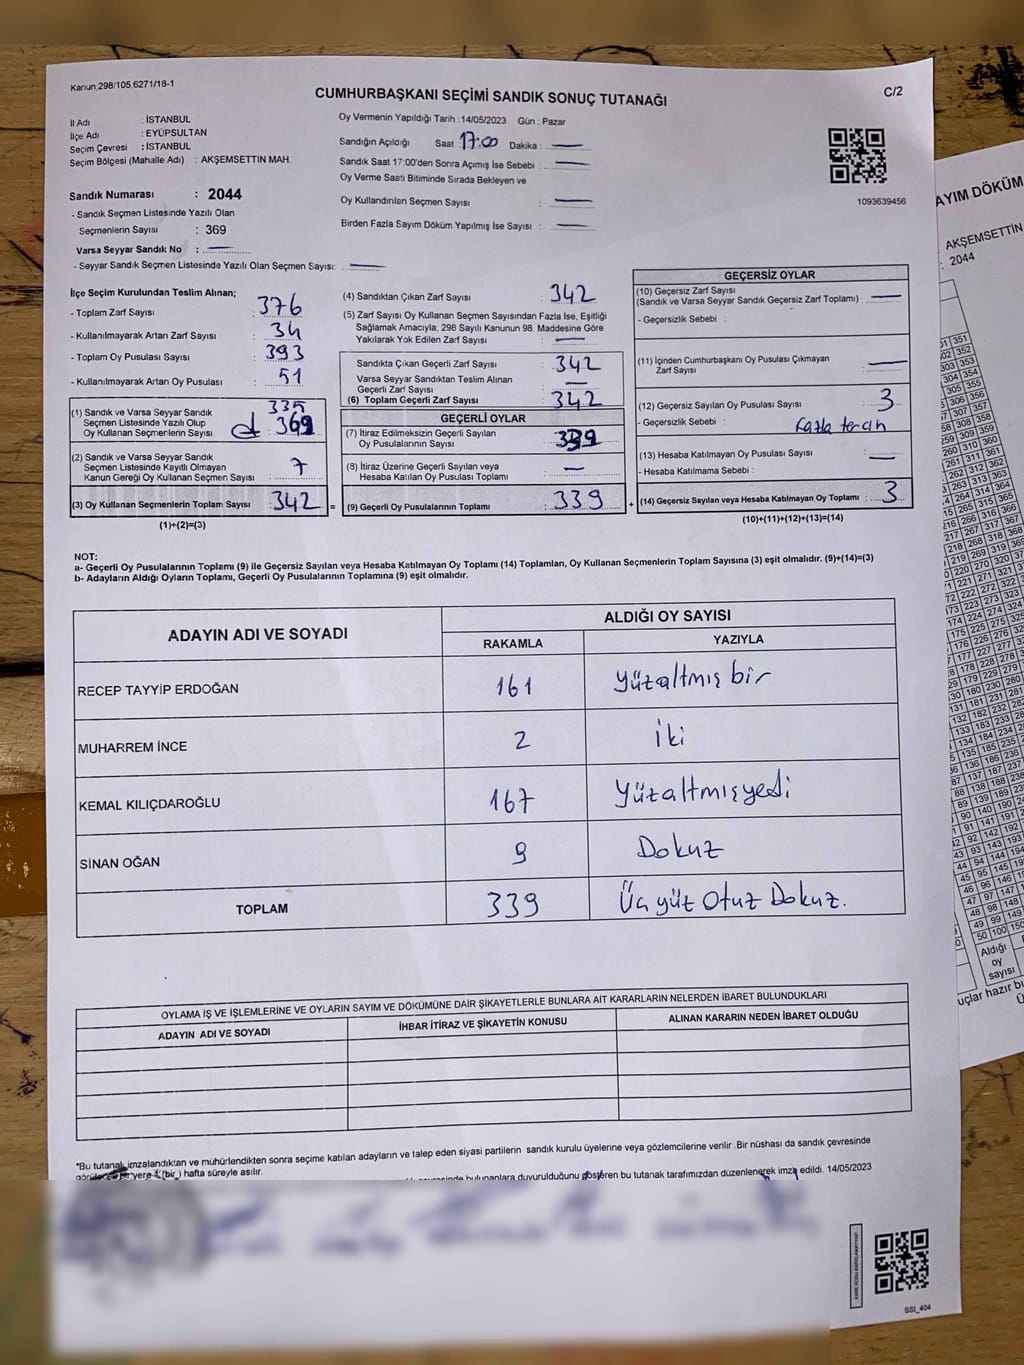 Kanun,298/105.6271/18-1
CUMHURBAŞKANI SEÇİMİ SANDIK SONUÇ TUTANAĞI
C/2
İl Adı : İSTANBUL
İlçe Adı : EYÜPSULTAN
Seçim Çevresi : İSTANBUL
Seçim Bölgesi (Mahalle Adı) : AKŞEMSETTİN MAH.
Sandık Numarası : 2044
- Sandık Seçmen Listesinde Yazılı Olan
Seçmenlerin Sayısı : 369
Varsa Seyyar Sandık No :
- Seyyar Sandık Seçmen Listesinde Yazılı Olan Seçmen Sayısı:
Oy Vermenin Yapıldığı Tarih : 14/05/2023 Gün : Pazar
Sandığın Açıldığı Saat 17:00 Dakika :
Sandık Saat 17:00'den Sonra Açımış İse Sebebi :
Oy Verme Saati Bitiminde Sırada Bekleyen ve
Oy Kullandırılan Seçmen Sayısı :
Birden Fazla Sayım Döküm Yapılmış İse Sayısı :
1093639456
İlçe Seçim Kurulundan Teslim Alınan;
- Toplam Zarf Sayısı : 376
- Kullanılmayarak Artan Zarf Sayısı : 34
- Toplam Oy Pusulası Sayısı : 393
- Kullanılmayarak Artan Oy Pusulası : 51
335
(1) Sandık ve Varsa Seyyar Sandık
Seçmen Listesinde Yazılı Olup
Oy Kullanan Seçmenlerin Sayısı : 369
(2) Sandık ve Varsa Seyyar Sandık
Seçmen Listesinde Kayıtlı Olmayan
Kanun Gereği Oy Kullanan Seçmen Sayısı : 7
(3) Oy Kullanan Seçmenlerin Toplam Sayısı : 342 =
(1)+(2)=(3)
(4) Sandıktan Çıkan Zarf Sayısı : 342
(5) Zarf Sayısı Oy Kullanan Seçmen Sayısından Fazla İse, Eşitliği
Sağlamak Amacıyla; 298 Sayılı Kanunun 98. Maddesine Göre
Yakılarak Yok Edilen Zarf Sayısı :
Sandıkta Çıkan Geçerli Zarf Sayısı : 342
Varsa Seyyar Sandıktan Teslim Alınan
Geçerli Zarf Sayısı :
(6) Toplam Geçerli Zarf Sayısı : 342
GEÇERLİ OYLAR
(7) İtiraz Edilmeksizin Geçerli Sayılan
Oy Pusulalarının Sayısı : 339
(8) İtiraz Üzerine Geçerli Sayılan veya
Hesaba Katılan Oy Pusulası Toplamı :
(9) Geçerli Oy Pusulalarının Toplamı : 339 +
GEÇERSİZ OYLAR
(10) Geçersiz Zarf Sayısı
(Sandık ve Varsa Seyyar Sandık Geçersiz Zarf Toplamı) :
- Geçersizlik Sebebi :
(11) İçinden Cumhurbaşkanı Oy Pusulası Çıkmayan
Zarf Sayısı :
(12) Geçersiz Sayılan Oy Pusulası Sayısı : 3
- Geçersizlik Sebebi : fazla tercih
(13) Hesaba Katılmayan Oy Pusulası Sayısı :
- Hesaba Katılmama Sebebi :
(14) Geçersiz Sayılan veya Hesaba Katılmayan Oy Toplamı : 3
(10)+(11)+(12)+(13)=(14)
NOT:
a- Geçerli Oy Pusulalarının Toplamı (9) ile Geçersiz Sayılan veya Hesaba Katılmayan Oy Toplamı (14) Toplamları, Oy Kullanan Seçmenlerin Toplam Sayısına (3) eşit olmalıdır. (9)+(14)=(3)
b- Adayların Aldığı Oyların Toplamı, Geçerli Oy Pusulalarının Toplamına (9) eşit olmalıdır.
ADAYIN ADI VE SOYADI ALDIĞI OY SAYISI
RAKAMLA YAZIYLA
RECEP TAYYİP ERDOĞAN 161 Yüzaltmış bir
MUHARREM İNCE 2 İki
KEMAL KILIÇDAROĞLU 167 Yüzaltmışyedi
SİNAN OĞAN 9 Dokuz
TOPLAM 339 Üçyüz Otuz Dokuz.
OYLAMA İŞ VE İŞLEMLERİNE VE OYLARIN SAYIM VE DÖKÜMÜNE DAİR ŞİKAYETLERLE BUNLARA AİT KARARLARIN NELERDEN İBARET BULUNDUKLARI
ADAYIN ADI VE SOYADI İHBAR İTİRAZ VE ŞİKAYETİN KONUSU ALINAN KARARIN NEDEN İBARET OLDUĞU
*Bu tutanak imzalandıktan ve mühürlendikten sonra seçime katılan adayların ve talep eden siyasi partilerin sandık kurulu üyelerine veya gözlemcilerine verilir .Bir nüshası da sandık çevresinde
bir yere 1 (bir ) hafta süreyle asılır.
bulunanlara duyurulduğunu gösteren bu tutanak tarafımızdan düzenlenerek imza edildi. 14/05/2023
SSI_404
AYIM DÖKÜM
AKŞEMSETTİN
: 2044
Aldığı
oy
sayısı